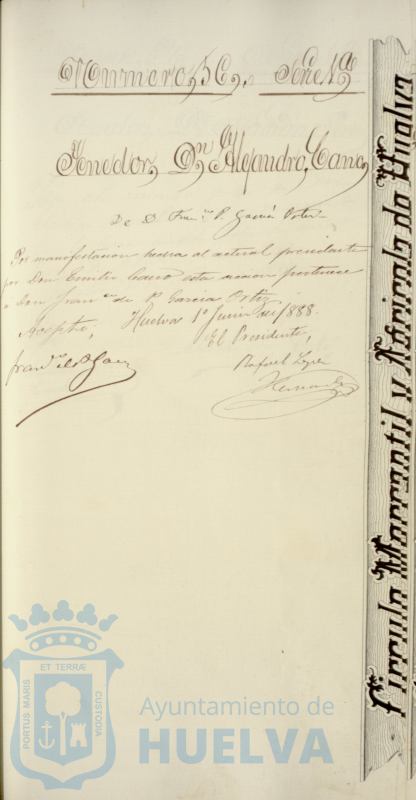 Numero, 56, Serie 1ª
Tenedor, Dn Alejandro, Cano,
De D. Franco P. Garcia Ortiz
Por manifestacion hecha al actual presidente
por Don Emilio Cano esta accion pertenece
a Don Franco de P. Garcia Ortiz
Huelva 1º Junio de 1888.
Acepto,
El Presidente,
Franco de P Garcia
Rafael Lopez
Hernandez
Círculo Mercantil y Agrícola de Huelva
PORTUS MARIS ET TERRÆ CUSTODIA
Ayuntamiento de
HUELVA